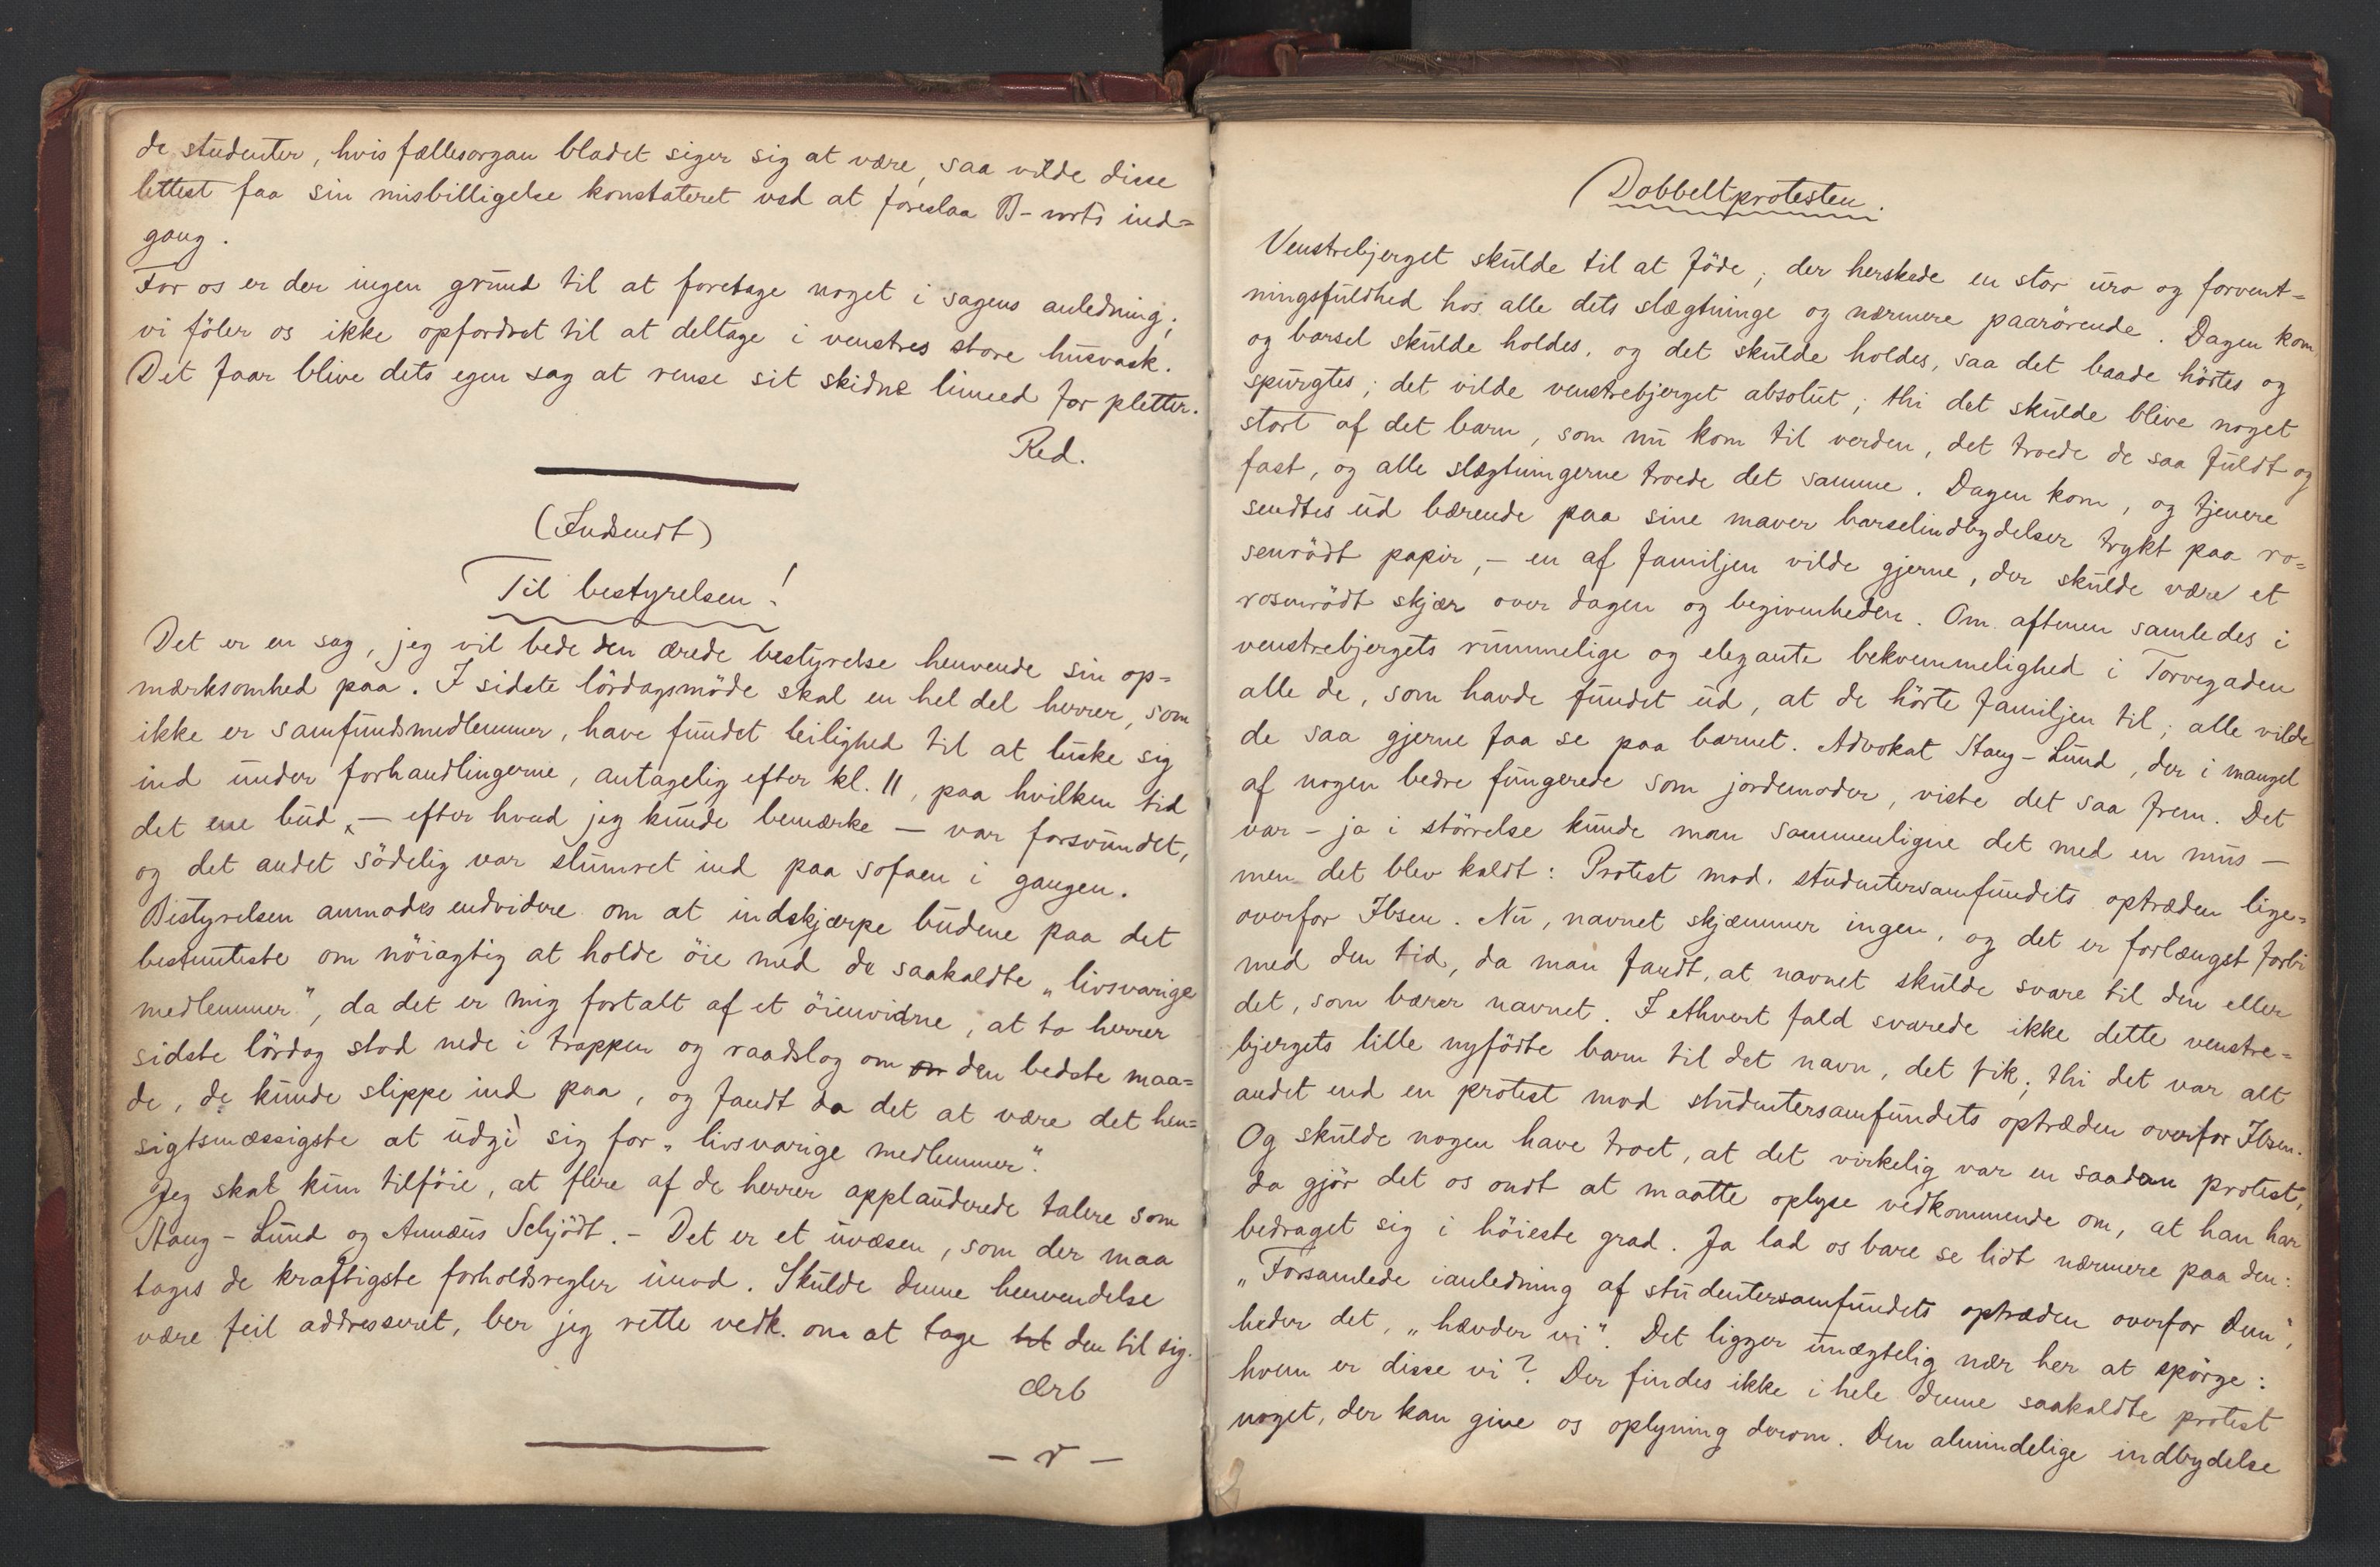 de studenter, hvis fællesorgan bladet siger sig at være, saa vilde disse
lettest faa sin misbilligelse konstateret ved at foreslaa B-nrts ind=
gang.
For os er der ingen grund til at foretage noget i sagens anledning;
vi föler os ikke opfordret til at deltage i venstres store husvask.
Det faar blive dets egen sag at rense sit skidne linned for pletter.
Red.
(Indsendt)
Til bestyrelsen!
Det er en sag, jeg vil bede den ærede bestyrelse henvende sin op=
mærksomhed paa. I sidste lördagsmöde skal en hel del herrer, som
ikke er samfundsmedlemmer, have fundet leilighed til at luske sig
ind under forhandlingerne, antagelig efter kl. 11, paa hvilken tid
det ene bud, — efter hvad jeg kunde bemærke — var forsvundet,
og det andet södelig var slumret ind paa sofaen i gangen.
Bestyrelsen anmodes endvidere om at indskjærpe budene paa det
bestemteste om nöiagtig at holde öie med de saakaldte „livsvarige
medlemmer", da det er mig fortalt af et öienvidne, at to herrer
sidste lördag stod nede i trappen og raadslog om om den bedste maa=
de, de kunde slippe ind paa, og fandt da det at være det hen=
sigtsmæssigste at udgi sig for „livsvarige medlemmer".
Jeg skal kun tilföie, at flere af de herrer applauderede talere som
Stang-Lund og Annæus Schjödt. - Det er et uvæsen, som der maa
tages de kraftigste forholdsregler imod. Skulde denne henvendelse
være feil addresseret, ber jeg rette vedk. om at tage tit den til sig.
Ærb
— r —
Dobbeltprotesten.
Venstrebjerget skulde til at föde; der herskede en stor uro og forvent=
ningsfuldhed hos alle dets slægtninge og nærmere paarörende. Dagen kom,
og barsel skulde holdes, og det skulde holdes, saa det baade hörtes og
spurgtes; det vilde venstrebjerget absolut; thi det skulde blive noget
stort af det barn, som nu kom til verden, det troede de saa fuldt og
fast, og alle slægtningerne troede det samme. Dagen kom, og tjenere
sendtes ud bærende paa sine maver barselindbydelser trykt paa ro=
senrödt papir, - en af familjen vilde gjerne, der skulde være et
rosenrödt skjær over dagen og begivenheden. Om aftenen samledes i
venstrebjergets rummelige og elegante bekvemmelighed i Torvegaden
alle de, som havde fundet ud, at de hörte familjen til; alle vilde
de saa gjerne faa se paa barnet. Advokat Stang-Lund, der i mangel
af nogen bedre fungerede som jordemoder, viste det saa frem. Det
var - ja i störrelse kunde man sammenligne det med en mus —
men det blev kaldt: Protest mod studentersamfundets optræden lige=
overfor Ibsen. Nu, navnet skjæmmer ingen, og det er forlængst forbi
med den tid, da man fandt, at navnet skulde svare til den eller
det, som bærer navnet. I ethvert fald svarede ikke dette venstre=
bjergets lille nyfödte barn til det navn, det fik; thi det var alt
andet end en protest mod studentersamfundets optræden overfor Ibsen.
Og skulde nogen have troet, at det virkelig var en saadan protest,
da gjör det os ondt at maatte oplyse vedkommende om, at han har
bedraget sig i höieste grad. Ja lad os bare se lidt nærmere paa den:
„Forsamlede ianledning af studentersamfundets optræden overfor den",
heder det, „hævder vi". Det ligger unægtelig nær her at spörge:
hvem er disse vi? Der findes ikke i hele denne saakaldte protest
noget, der kan give os oplysning derom. Den almindelige indbydelse